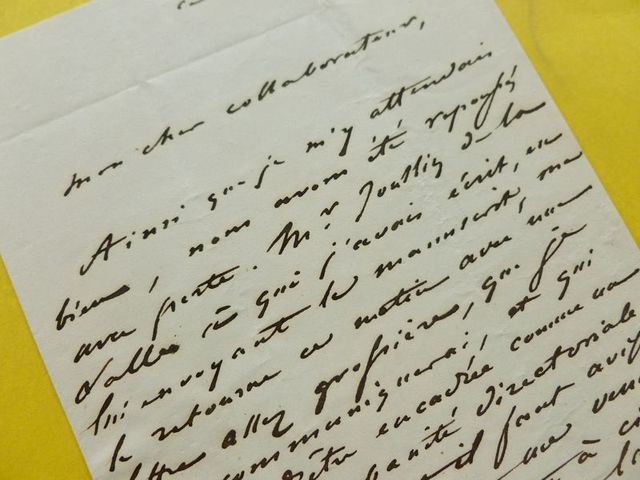 mon cher collaborateur,
Ainsi que je m'y attendais
bien, nous avons été repoussés
avec perte. Mr Jouslin de la
Salle à qui j'avais écrit, en
lui envoyant le manuscrit, me
le retourne ce matin avec une
lettre assez grossière, que je
communiquerai, et qui
d'être encadrée comme un
vanité directoriale
il faut
une
à